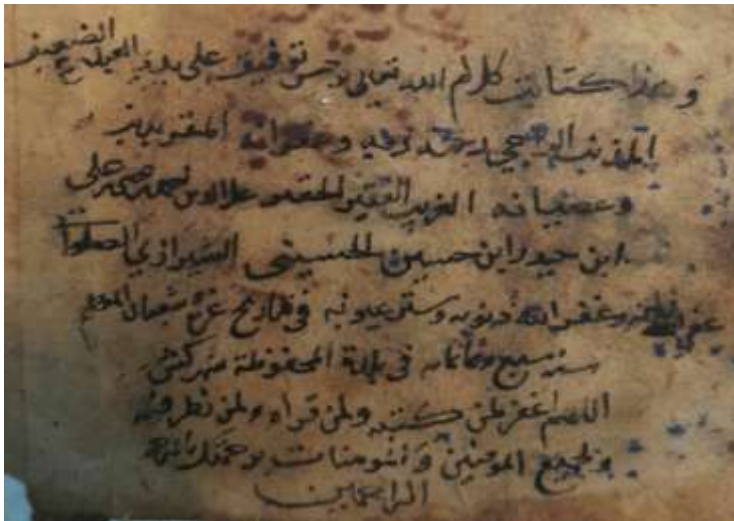 و هذا كتابت كلام الله تعالى وحسن توفيقه على يد العبد الضعيف
المذنب الراجي رحمة ربه وغفرانه المقر بذنبه
وعصيانه الغريب الفقير الحقير علاء الدين محمد علي
ابن حيدر ابن حسين الحسيني الشيرازي
غفر الله ذنوبه وستر عيوبه في تاريخ غرة شعبان المعظم
سنة سبع في بلدة المحفوظة
اللهم اغفر لمن كتبه ولمن قراه ولمن نظر فيه
ولجميع المومنين والمومنات برحمتك يا ارحم
الراحمين